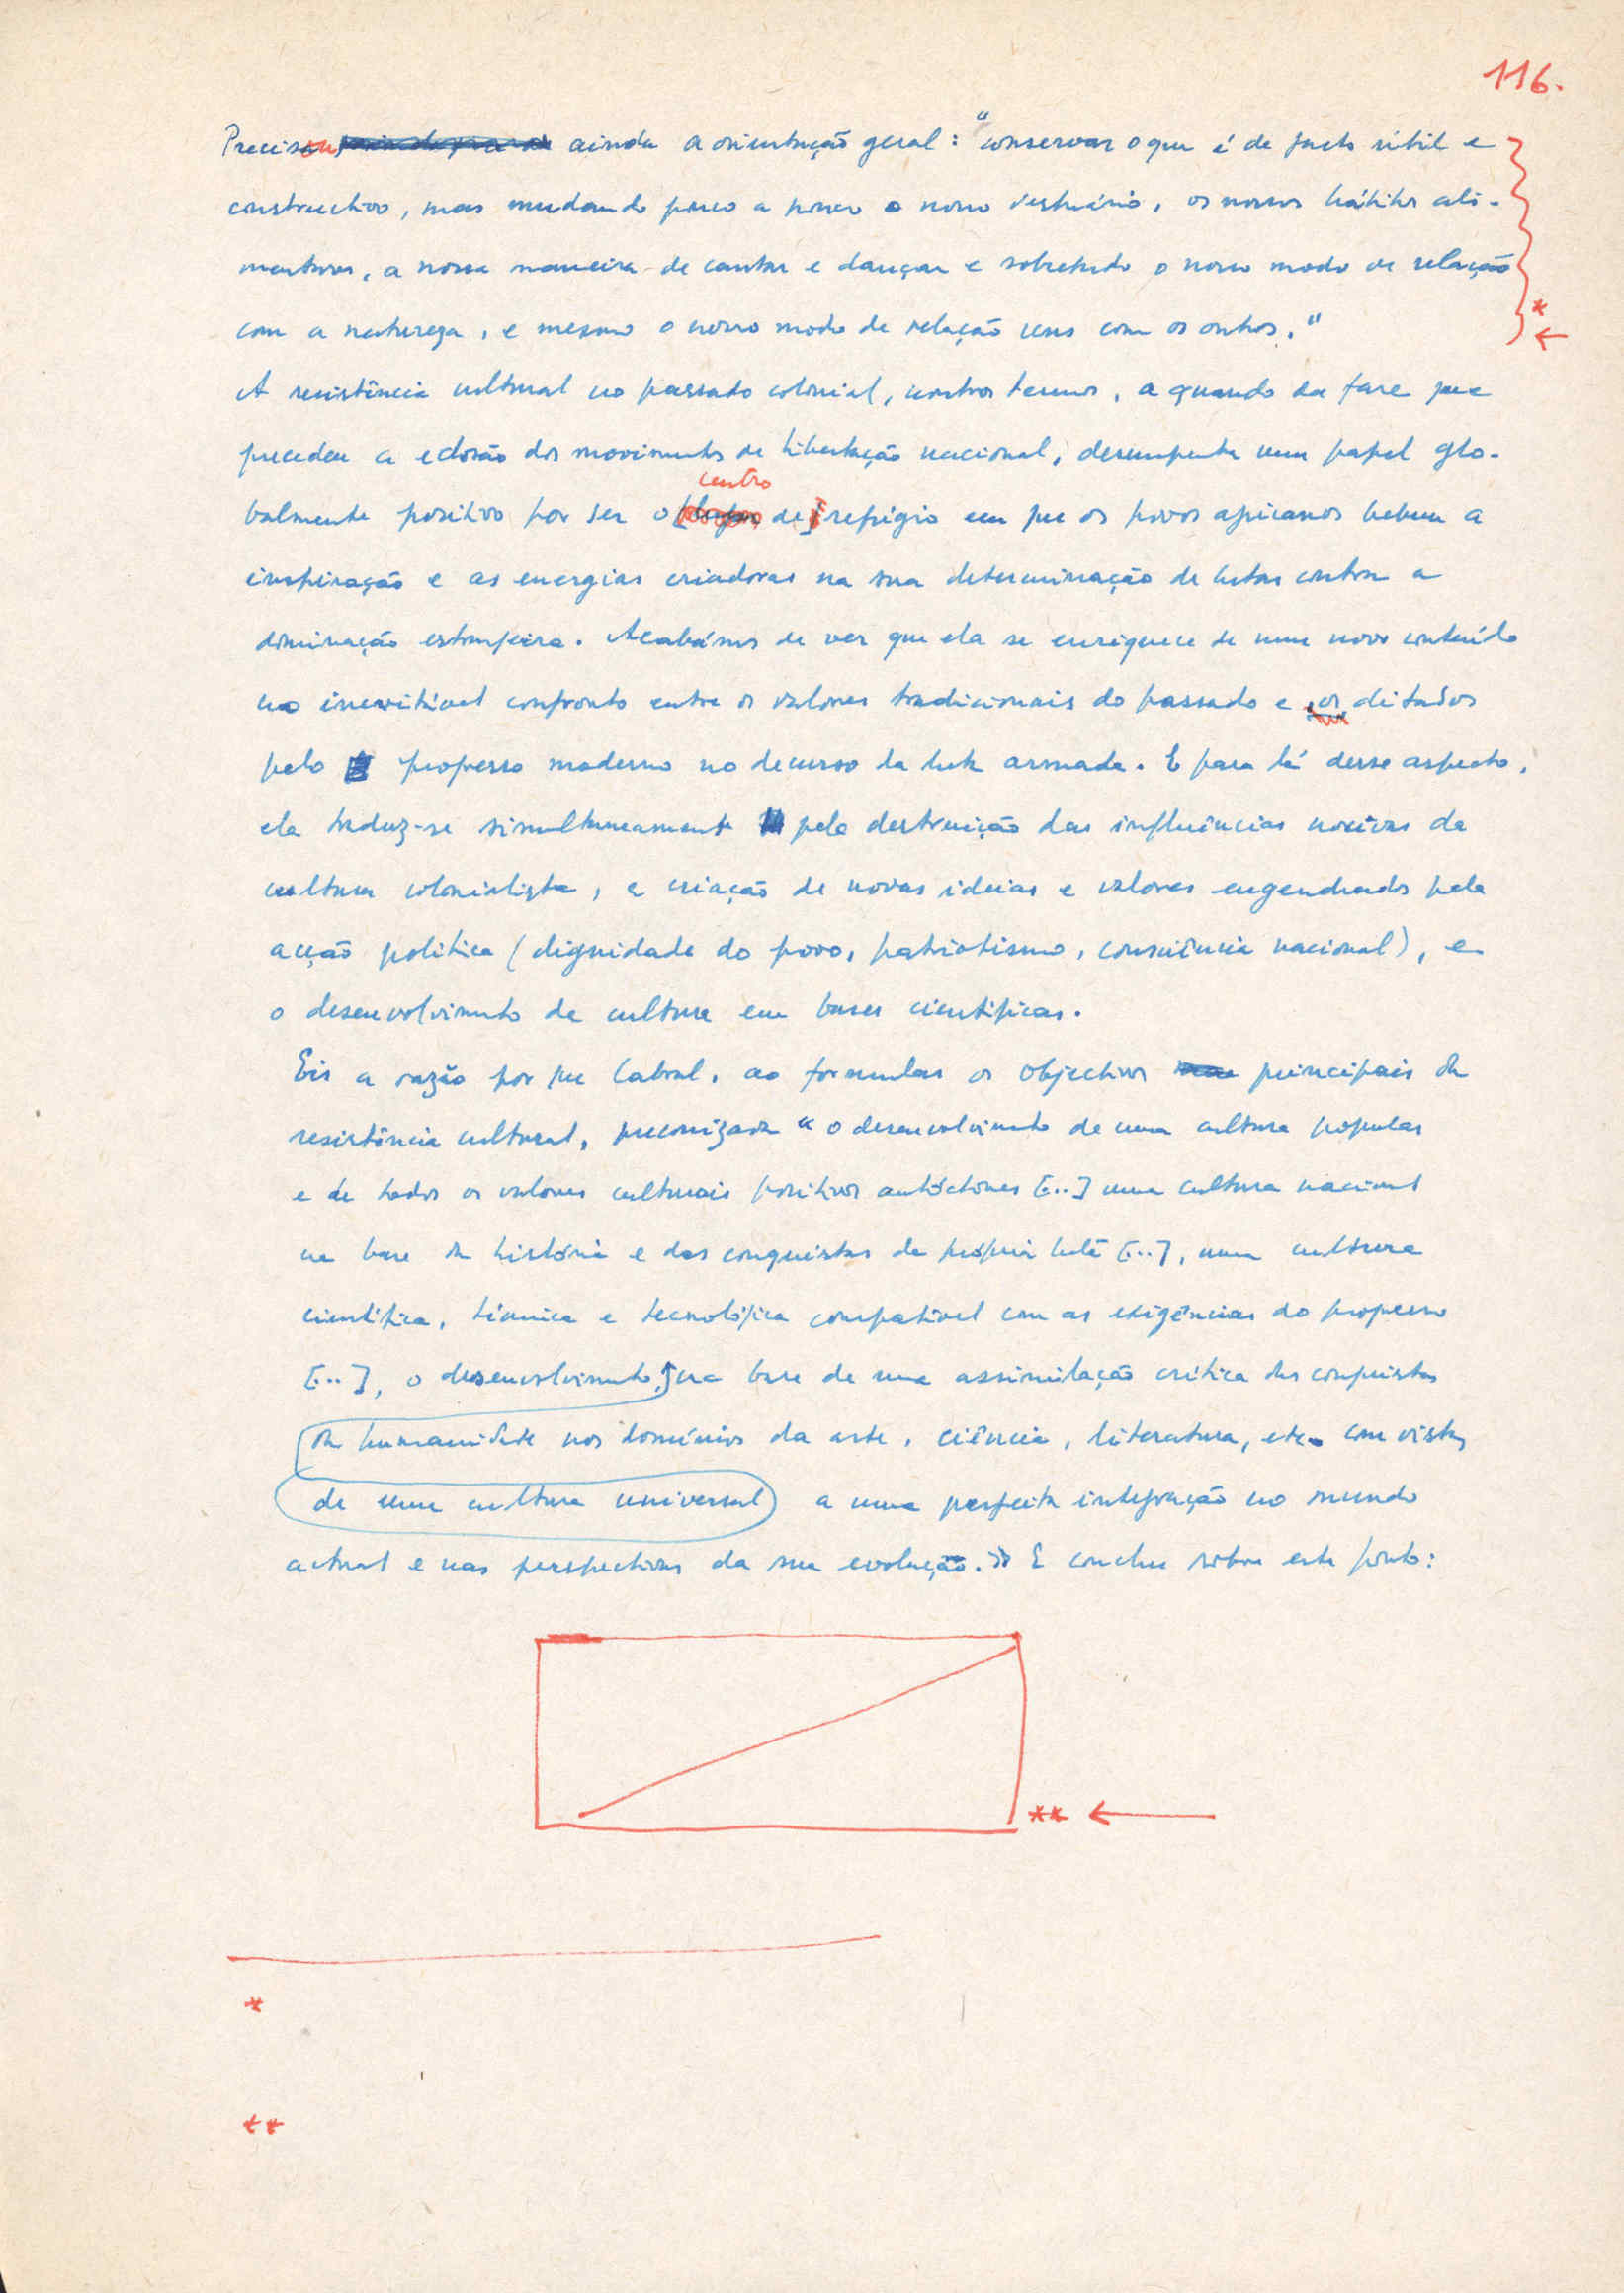 116.
Precisou ainda a orientação geral: "conservar o que é de facto útil e
constructivo, mas mudando pouco a pouco o nosso vestuário, os nossos hábitos ali-
mentares, a nossa maneira de cantar e dançar e sobretudo o nosso modo de relação
com a natureza, e mesmo o nosso modo de relação uns com os outros."
A resistência cultural no passado colonial, noutros termos, a quando da fase que
precedeu a eclosão dos movimentos de libertação nacional, desempenha um papel glo-
centro
balmente positivo por ser o [de] refúgio em que os povos africanos bebem a
inspiração e as energias criadoras na sua determinação de lutar contra a
dominação estrangeira. Acabámos de ver que ela se enriquece de um novo conteúdo
no inevitável confronto entre os valores tradicionais do passado e os ditados
pelo progresso moderno no decurso da luta armada. E para lá desse aspecto,
ela traduz-se simultaneamente pela destruição das influências nocivas da
cultura colonialista, a criação de novas ideias e valores engendrados pela
acção política (dignidade do povo, patriotismo, consciência nacional), e
o desenvolvimento da cultura em bases científicas.
Eis a razão por que Cabral, ao formular os objectivos principais da
resistência cultural, preconizava "o desenvolvimento de uma cultura popular
e de todos os valores culturais positivos autóctones [..] uma cultura nacional
na base da história e das conquistas da própria luta [..], uma cultura
científica, técnica e tecnológica compatível com as exigências do progresso
[..], o desenvolvimento, na base de uma assimilação crítica das conquistas
da humanidade nos domínios da arte, ciência, literatura, etc. com vista,
de uma cultura universal a uma perfeita integração no mundo
actual e nas perspectivas da sua evolução.» E conclui sobre este ponto:
*
**
*
**